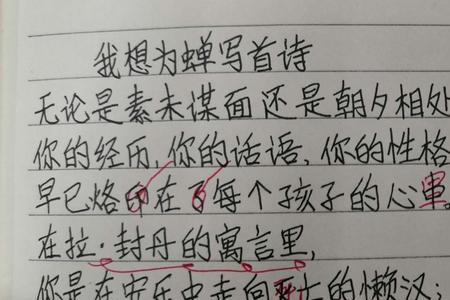 我想为蝉写首诗
无论是素未谋面还是朝夕相处
你的经历,你的话语,你的性格
早已烙印在了每个孩子的心里。
在拉·封丹的寓言里,
你是在安乐中走向死亡的懒汉;